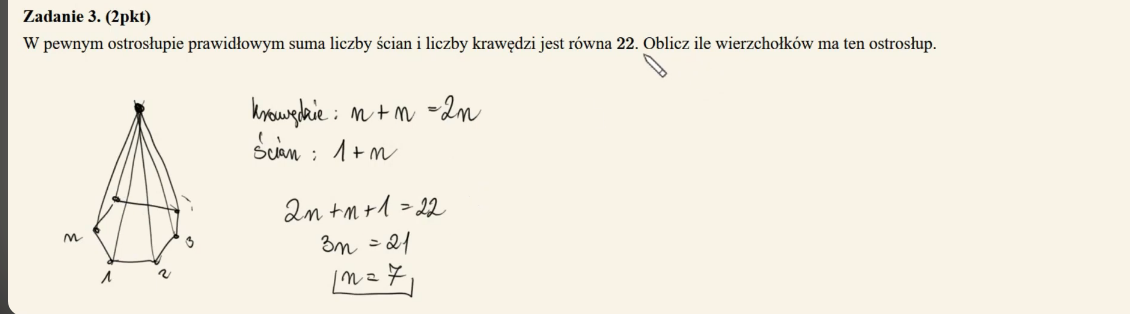 Zadanie 3. (2pkt)
W pewnym ostrosłupie prawidłowym suma liczby ścian i liczby krawędzi jest równa 22. Oblicz ile wierzchołków ma ten ostrosłup.
krawędzie : n + n = 2n
ścian : 1 + n
2n + n + 1 = 22
3n = 21
n = 7
n
3
1
2